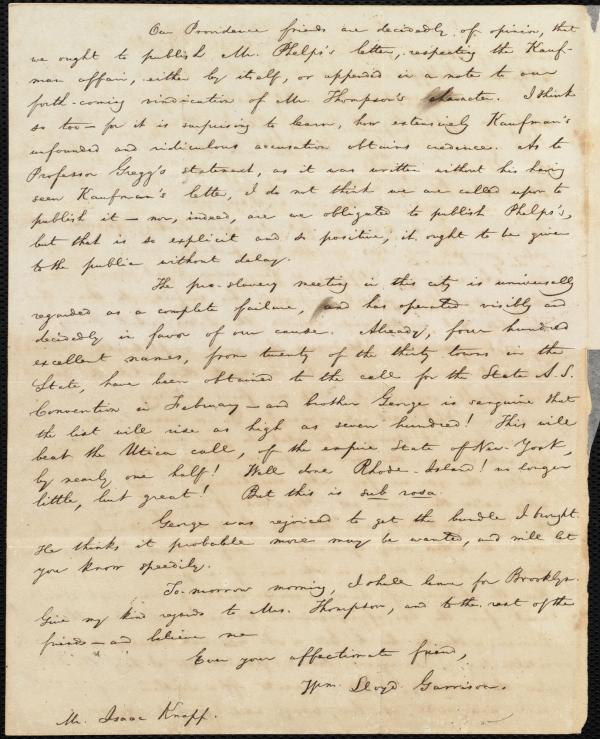 Our Providence friends are decidedly of opinion, that
we ought to publish Mr. Phelps's letter, respecting the Kauf-
man affair, either by itself, or appended in a note to our
forth-coming vindication of Mr. Thompson's character. I think
so too — for it is surprising to learn, how extensively Kaufman's
unfounded and ridiculous accusation obtains credence. As to
Professor Gregg's statement, as it was written without his having
seen Kaufman's letter, I do not think we are called upon to
publish it — nor, indeed, are we obligated to publish Phelps's,
but that is so explicit and so positive, it ought to be given
to the public without delay.
The pro-slavery meeting in this city is universally
regarded as a complete failure, and has operated visibly and
decidedly in favor of our cause. Already, four hundred
excellent names, from twenty of the thirty towns in the
State, have been obtained to the call for the State A. S.
Convention in February — and brother George is sanguine that
the list will rise as high as seven hundred! This will
beat the Utica call, of the empire State of New-York,
by nearly one half! Well done Rhode-Island! no longer
little, but great! But this is sub rosa.
George was rejoiced to get the bundle I brought.
He thinks it probable more may be wanted, and will let
you know speedily.
To-morrow morning, I shall leave for Brooklyn.
Give my kind regards to Mrs. Thompson, and to the rest of the
friends — and believe me
Ever your affectionate friend,
Wm. Lloyd Garrison.
Mr. Isaac Knapp.